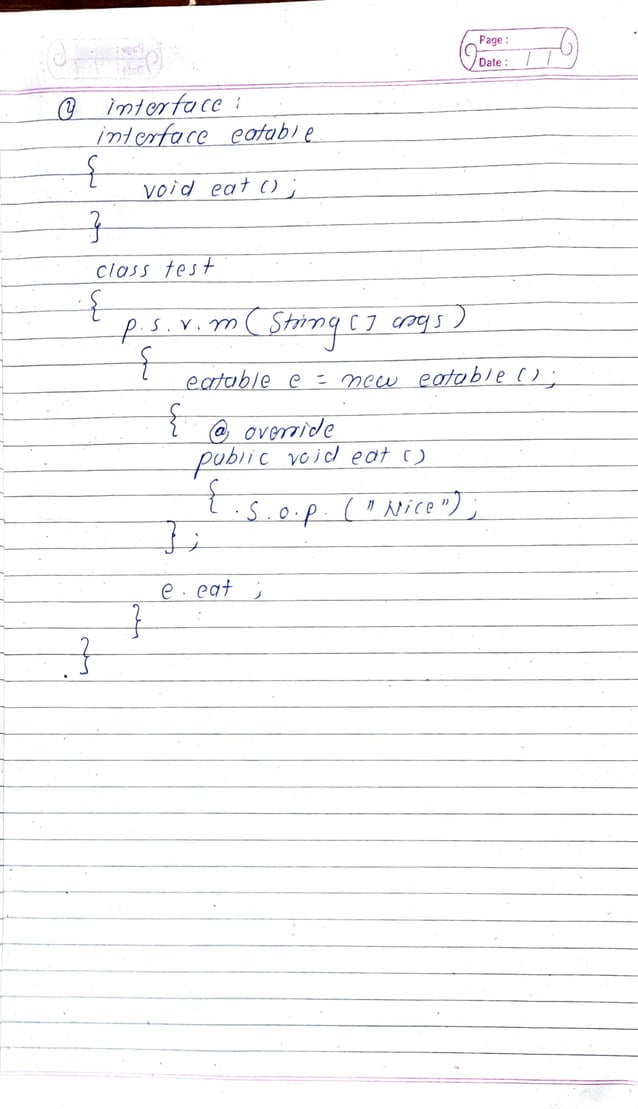 Page :
Date : / /
④ interface :
interface eatable
{
void eat ( ) ;
}
class test
{
p. s. v. m ( String [ ] args )
{
eatable e = new eatable ( ) ;
{ @ override
public void eat ( )
{ . S. o. p. ( " Nice " ) ;
} ;
e. eat ;
}
. }